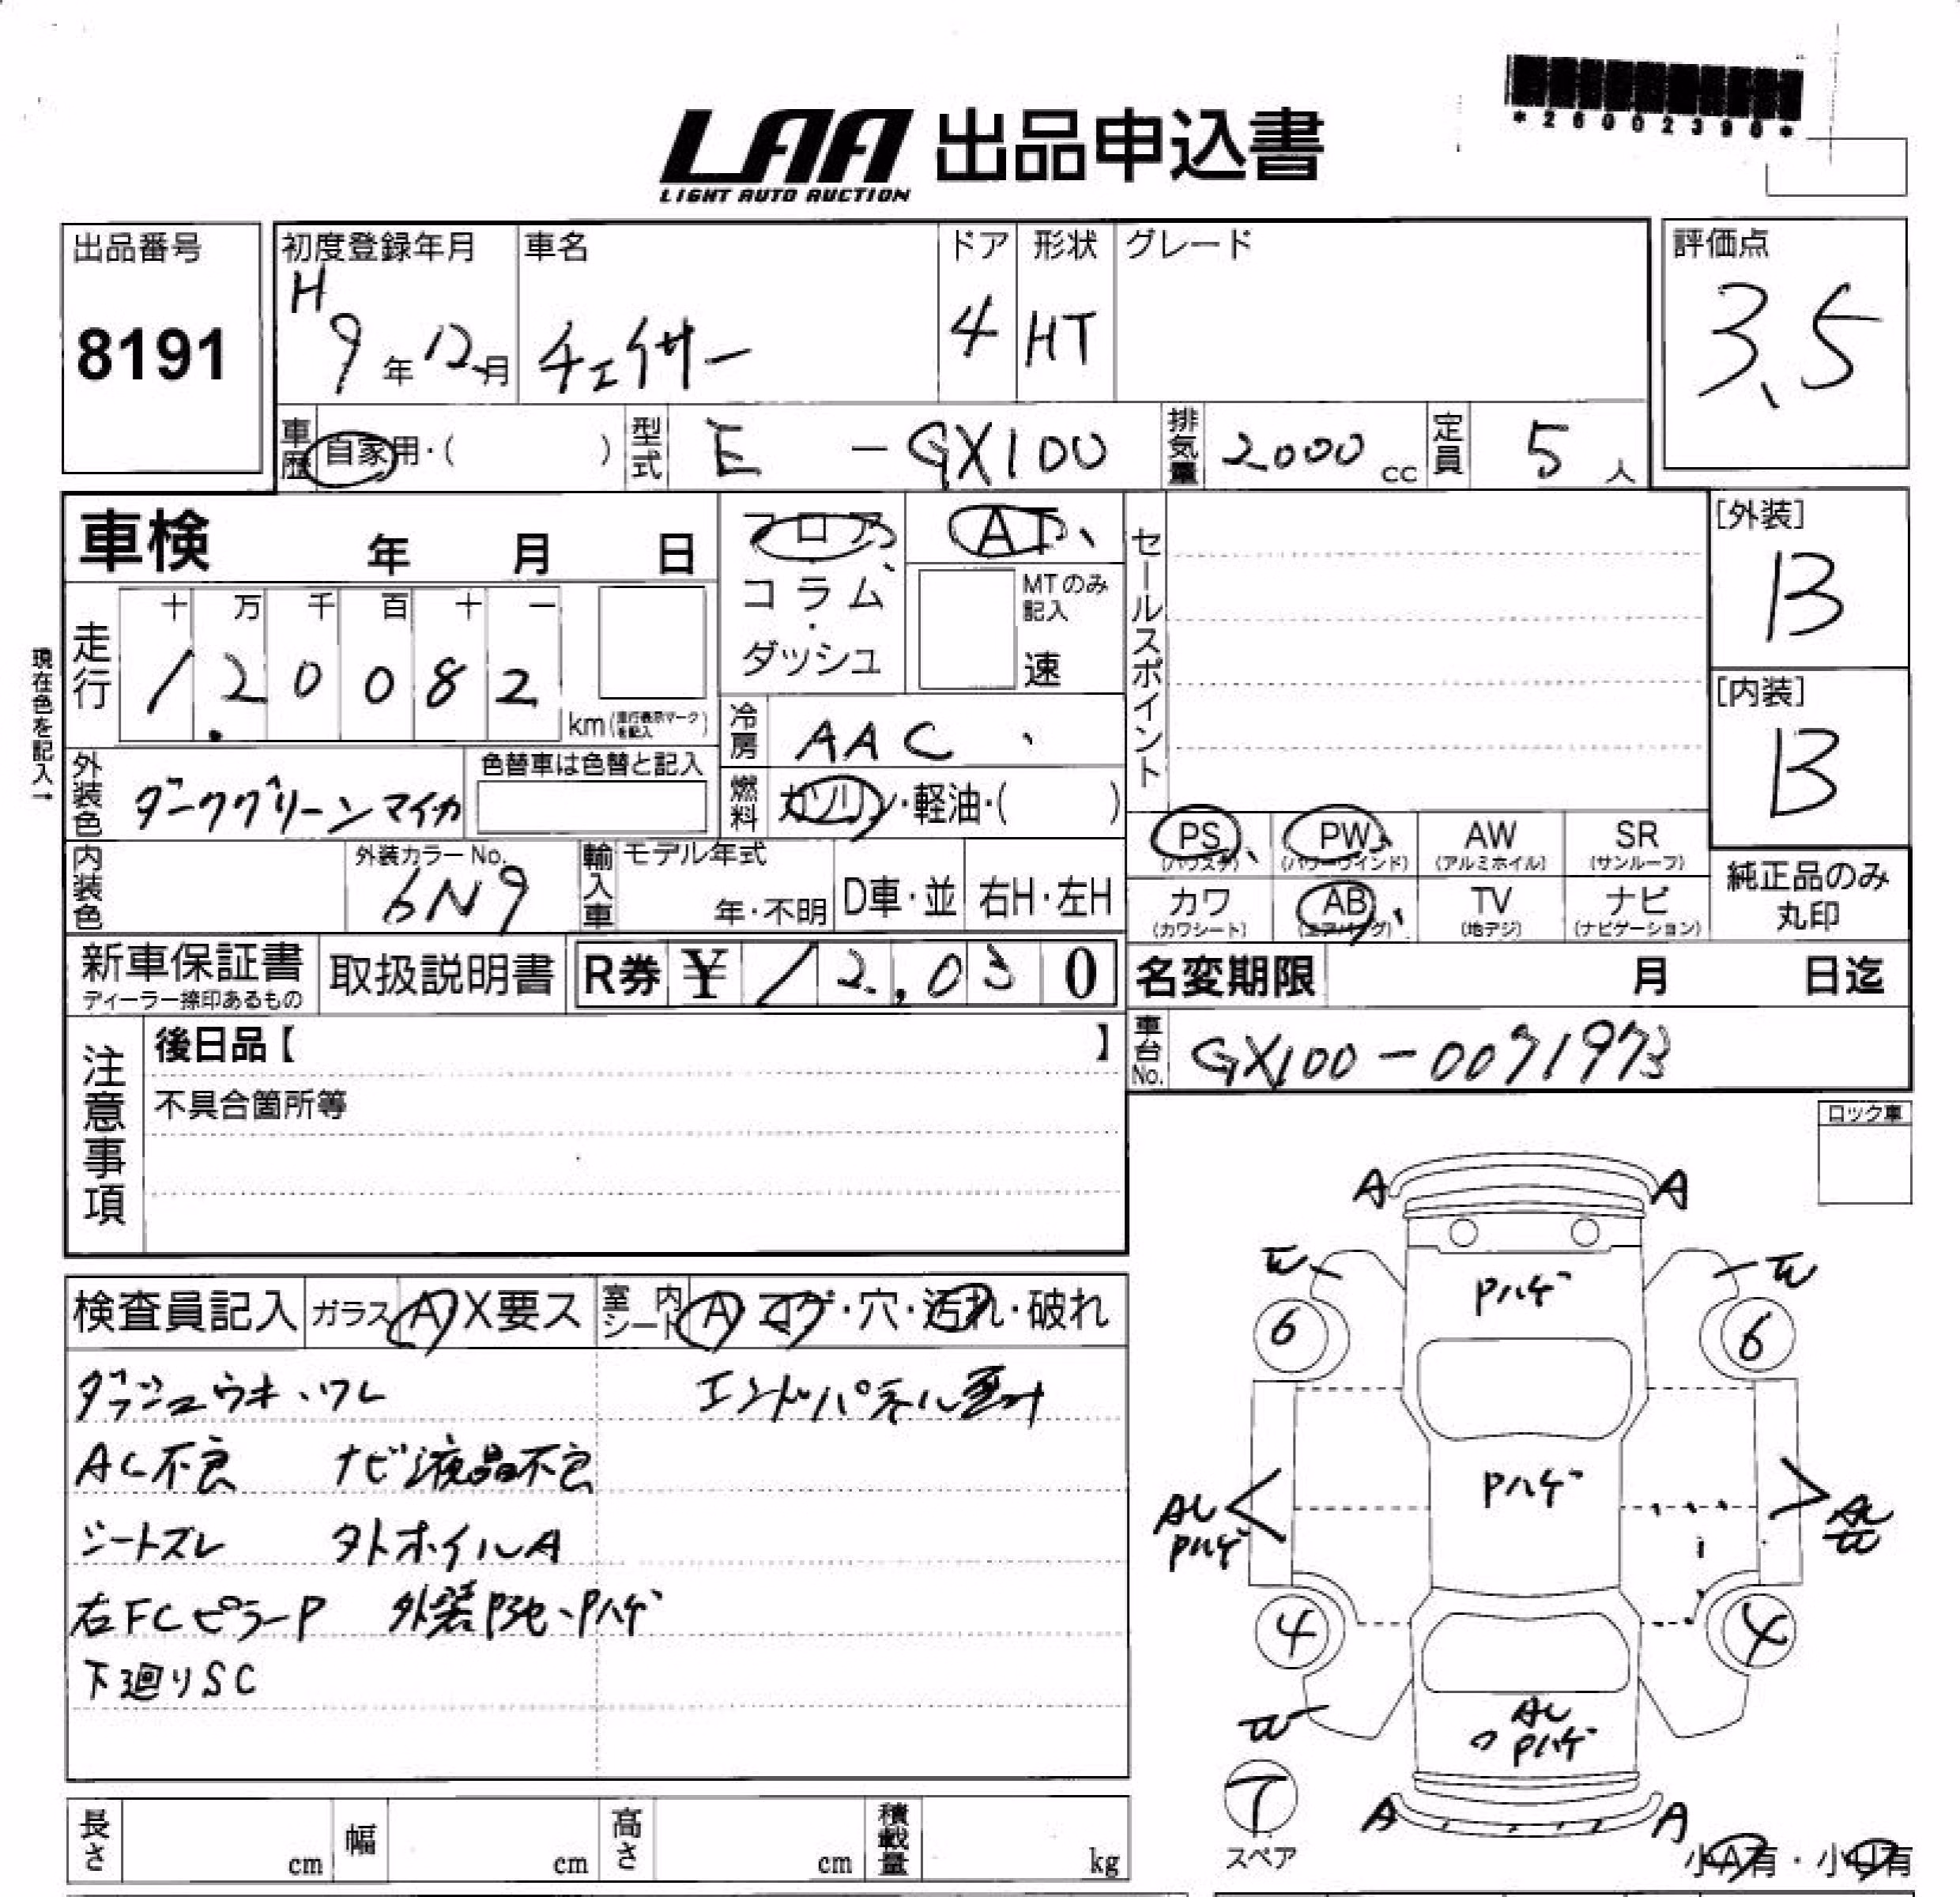 *26002390*
LAA 出品申込書
LIGHT AUTO AUCTION
出品番号
8191
初度登録年月 車名 ドア 形状 グレード
H 9年12月 チェイサー 4 HT
評価点
3.5
車歴 自家用・( ) 型式 E - GX100 排気量 2000cc 定員 5人
車検 年 月 日
フロア・コラム・ダッシュ
AT
MTのみ記入
速
セールスポイント
[外装]
B
[内装]
B
現在色を記入→
走行 十 万 千 百 十 一
1 2 0 0 8 2
km(走行表示マークを記入)
冷房 AAC
外装色 ダークグリーンマイカ 色替車は色替と記入
燃料 ガソリン・軽油・( )
PS (パワステ) PW (パワーウインド) AW (アルミホイル) SR (サンルーフ)
カワ (カワシート) AB (エアバッグ) TV (地デジ) ナビ (ナビゲーション)
純正品のみ丸印
内装色 外装カラーNo. 6N9 輸入車 モデル年式 年・不明 D車・並 右H・左H
新車保証書 ディーラー捺印あるもの 取扱説明書 R券 ¥12,030
名変期限 月 日迄
車台No. GX100-0071973
注意事項
後日品【 】
不具合箇所等
ロック車
検査員記入 ガラス A X要ス 室内シート A コゲ・穴・汚れ・破れ
ダッシュウキ、ワレ エンドパネル歪
AC不良 ナビ液晶不良
シートスレ タトホイルA
右FCピラーP 外装 Pハゲ
下廻りSC
A A
Pハゲ
6 6
Pハゲ
Pハゲ
4 4
Pハゲ
T
スペア
A A
小A有・小U有
長さ cm 幅 cm 高さ cm 積載量 kg